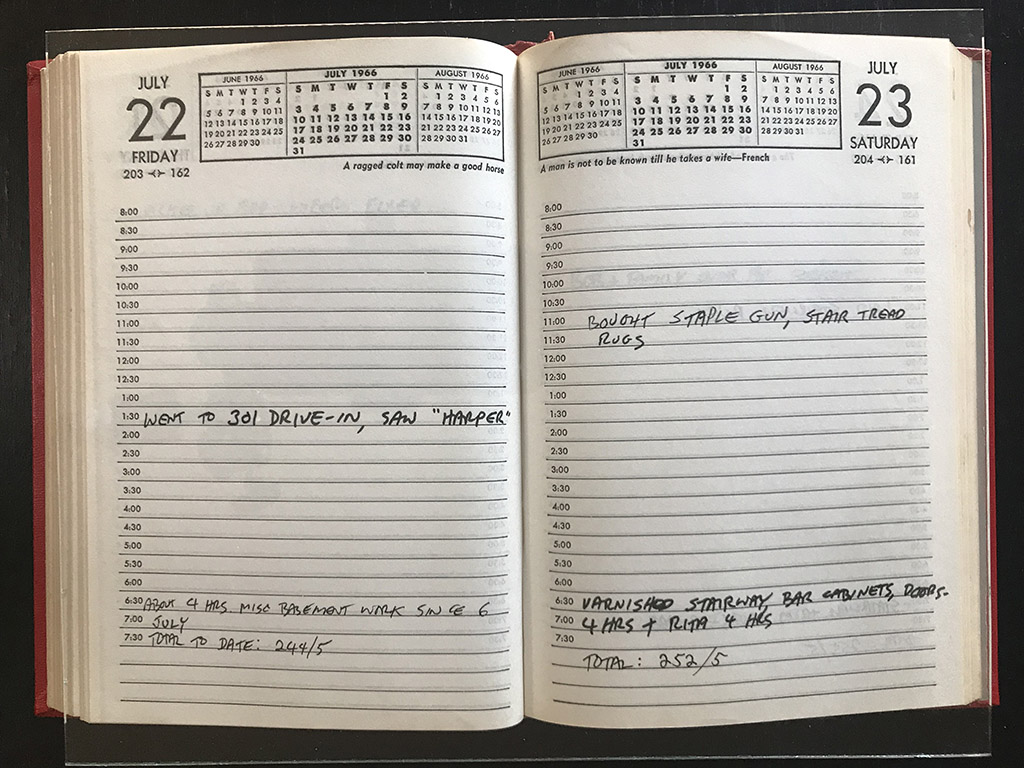 JULY
22
FRIDAY
203 162
JUNE 1966
S M T W T F S
1 2 3 4
5 6 7 8 9 10 11
12 13 14 15 16 17 18
19 20 21 22 23 24 25
26 27 28 29 30
JULY 1966
S M T W T F S
1 2
3 4 5 6 7 8 9
10 11 12 13 14 15 16
17 18 19 20 21 22 23
24 25 26 27 28 29 30
31
AUGUST 1966
S M T W T F S
1 2 3 4 5 6
7 8 9 10 11 12 13
14 15 16 17 18 19 20
21 22 23 24 25 26 27
28 29 30 31
A ragged colt may make a good horse
8:00
8:30
9:00
9:30
10:00
10:30
11:00
11:30
12:00
12:30
1:00
1:30 WENT TO 301 DRIVE-IN, SAW "HARPER"
2:00
2:30
3:00
3:30
4:00
4:30
5:00
5:30
6:00
6:30 ABOUT 4 HRS MISC BASEMENT WORK SINCE 6
7:00 JULY
7:30 TOTAL TO DATE: 244/5
JUNE 1966
S M T W T F S
1 2 3 4
5 6 7 8 9 10 11
12 13 14 15 16 17 18
19 20 21 22 23 24 25
26 27 28 29 30
JULY 1966
S M T W T F S
1 2
3 4 5 6 7 8 9
10 11 12 13 14 15 16
17 18 19 20 21 22 23
24 25 26 27 28 29 30
31
AUGUST 1966
S M T W T F S
1 2 3 4 5 6
7 8 9 10 11 12 13
14 15 16 17 18 19 20
21 22 23 24 25 26 27
28 29 30 31
JULY
23
SATURDAY
204 161
A man is not to be known till he takes a wife—French
8:00
8:30
9:00
9:30
10:00
10:30
11:00 BOUGHT STAPLE GUN, STAIR TREAD
11:30 RUGS
12:00
12:30
1:00
1:30
2:00
2:30
3:00
3:30
4:00
4:30
5:00
5:30
6:00
6:30 VARNISHED STAIRWAY, BAR CABINETS, DOORS.
7:00 4 HRS + RITA 4 HRS
7:30
TOTAL: 252/5